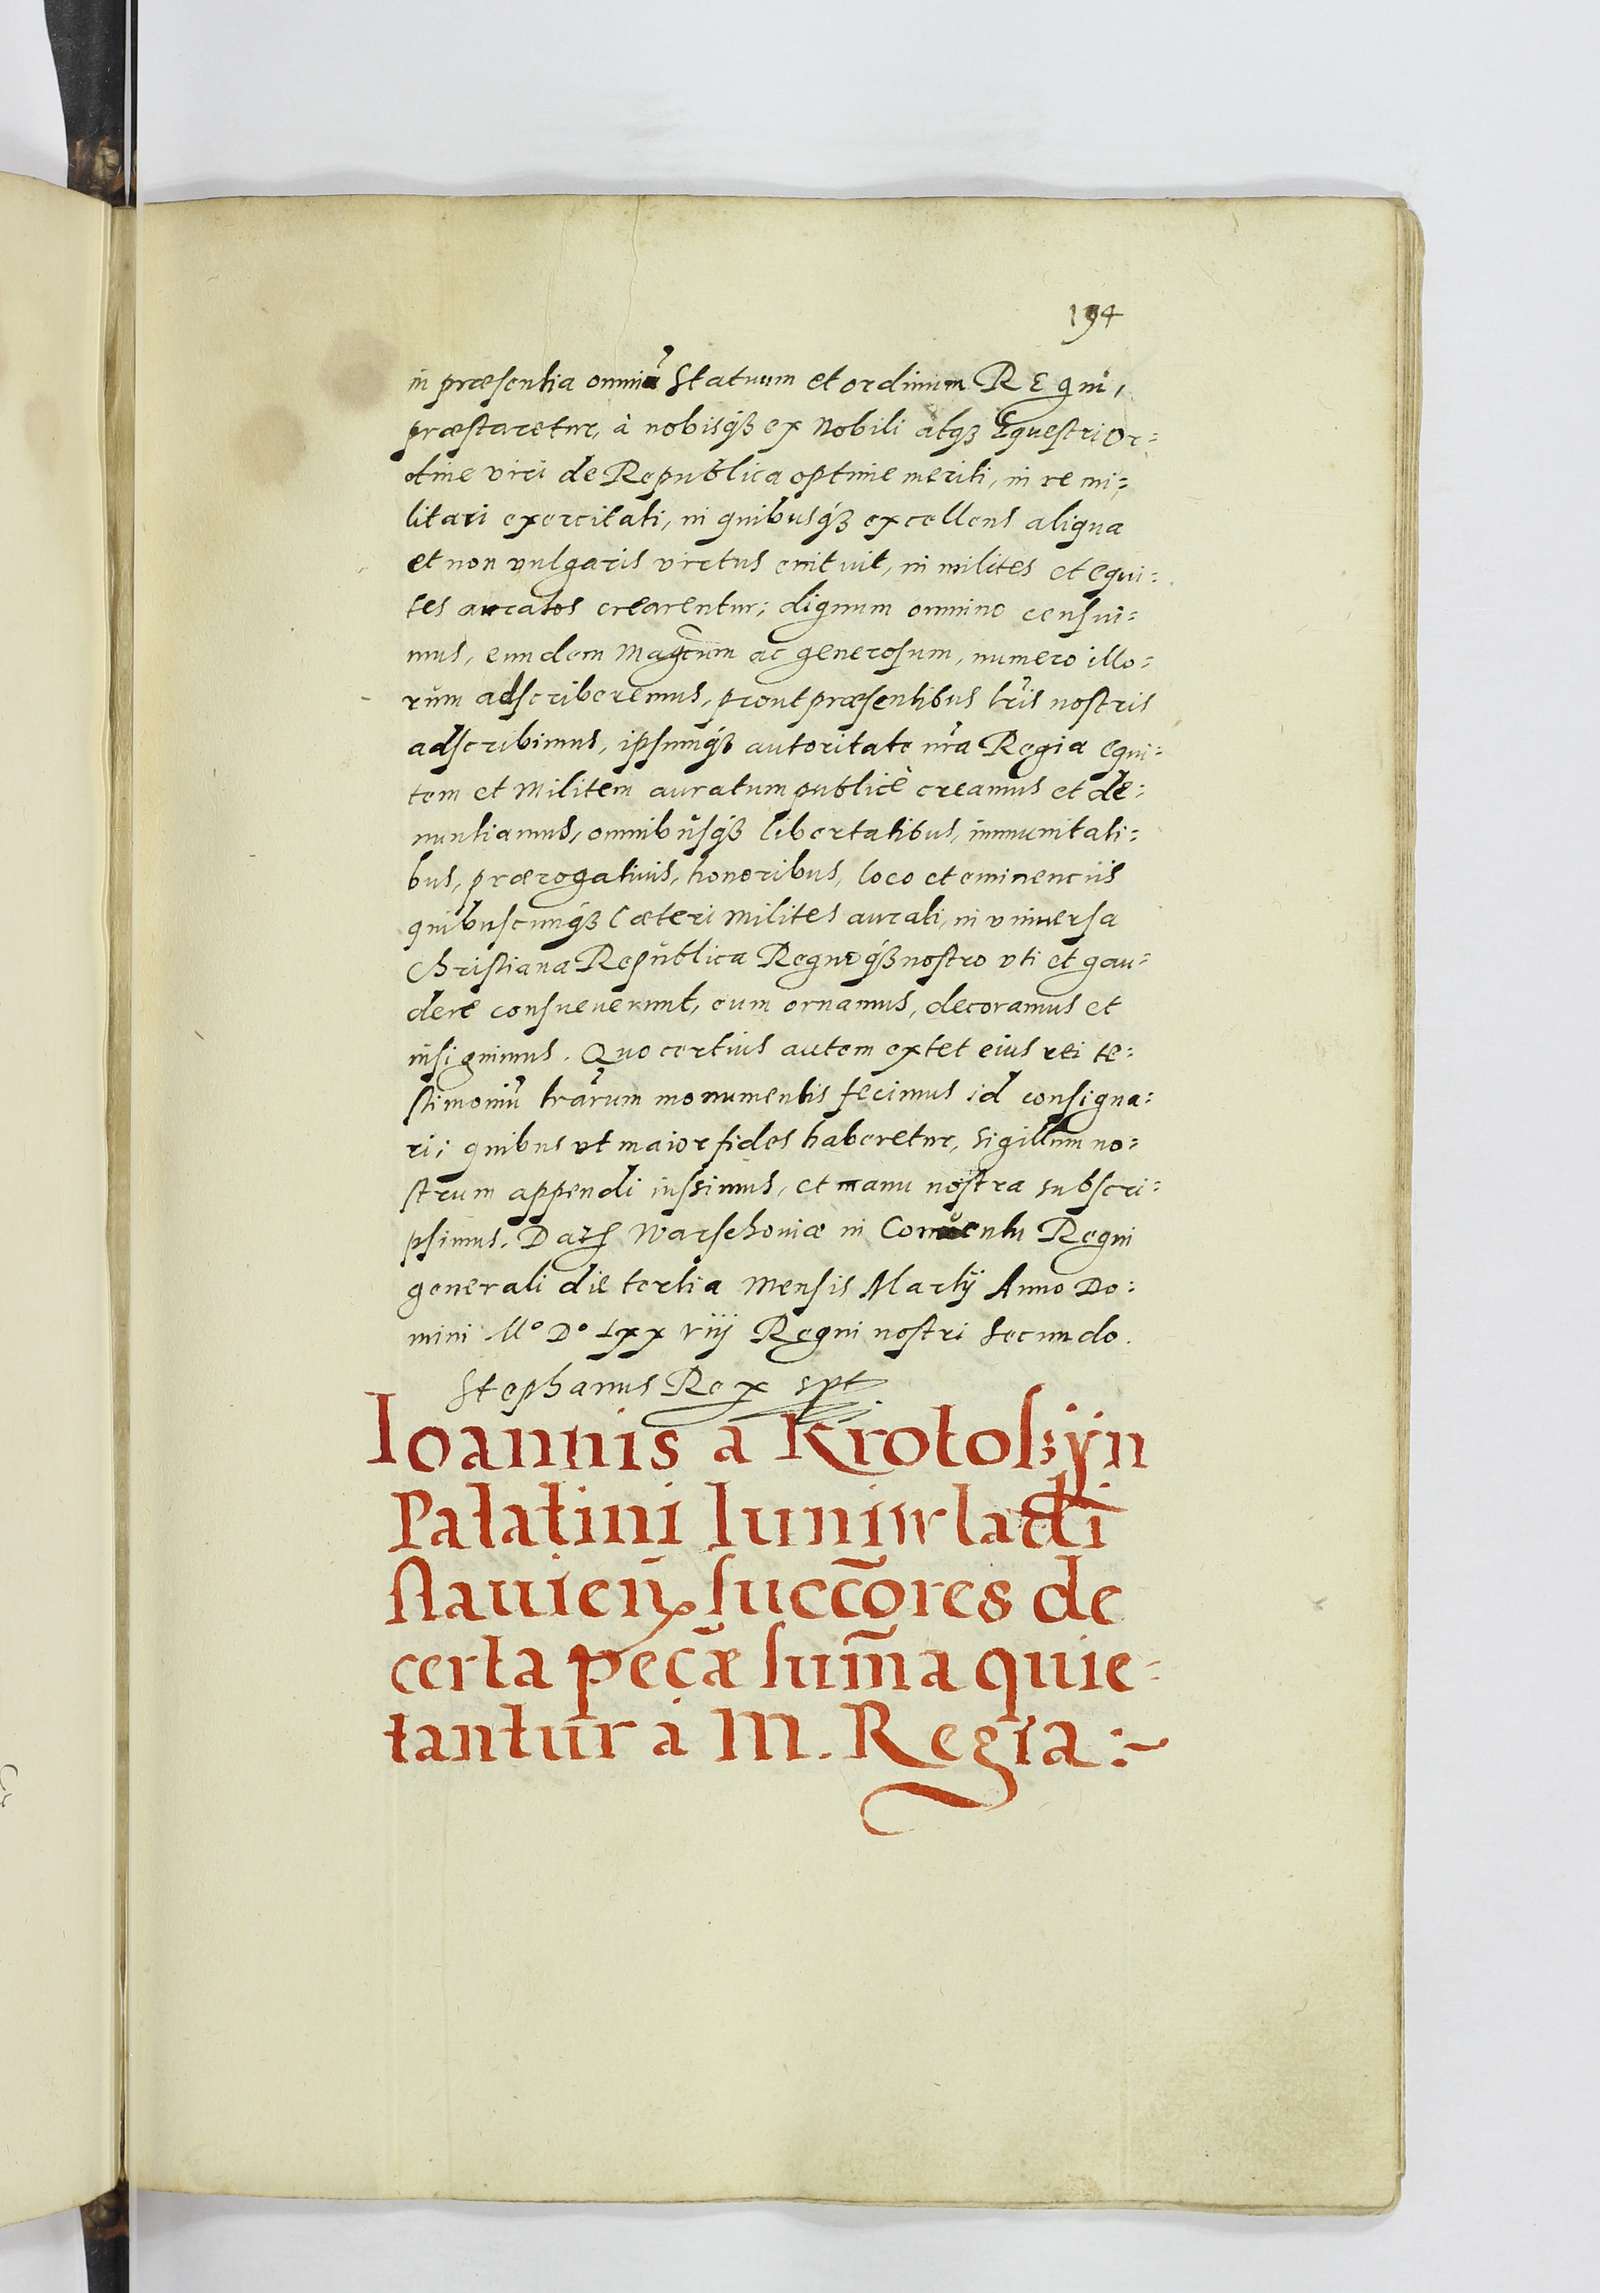 194
in præsentia omniũ Statuum et ordinum REgni,
præstaretur, à nobisq́ȝ ex Nobili atqȝ Equestri Or=
dine viri de Republica optime meriti, in re mi=
litari exercitati, in quibusq́ȝ excellens aliqua
et non vulgaris virtus enituit, in milites et equi=
tes auratos crearentur; dignum omnino censui=
mus, eundem Magcum ac generosum, numero illo=
rum adscriberemus, prout præsentibus lr̃is nostris
adscribimus, ipsumq́ȝ autoritate nr̃a Regia equi=
tem et Militem auratum publicè creamus et de=
nuntiamus, omnibusq́ȝ libertatibus, immunitati=
bus, prærogativis, honoribus, loco et eminenciis
quibuscunq́ȝ Cæteri Milites aurati, in universa
Christiana Republica Regnoq́ȝ nostro vti et gau=
dere consueverunt, eum ornamus, decoramus et
insignimus. Quo certius autem extet eius rei te=
stimoniũ lr̃arum monumentis fecimus id consigna=
ri; quibus ut maior fides haberetur, sigillum no=
strum appendi iussimus, et manu nostra subscri=
psimus. Dat Warschoviæ in Conventu Regni
generali die tertia Mensis Martij Anno Do=
mini Mº Dº Lxx viij Regni nostri Secundo.
Stephanus Rex spt
Ioannis a Krotoszyn
Palatini Iuniwladi
slavien̄ succ̄ores de
certa pec̄æ sum̄a quie=
tantur à M. Regia:~